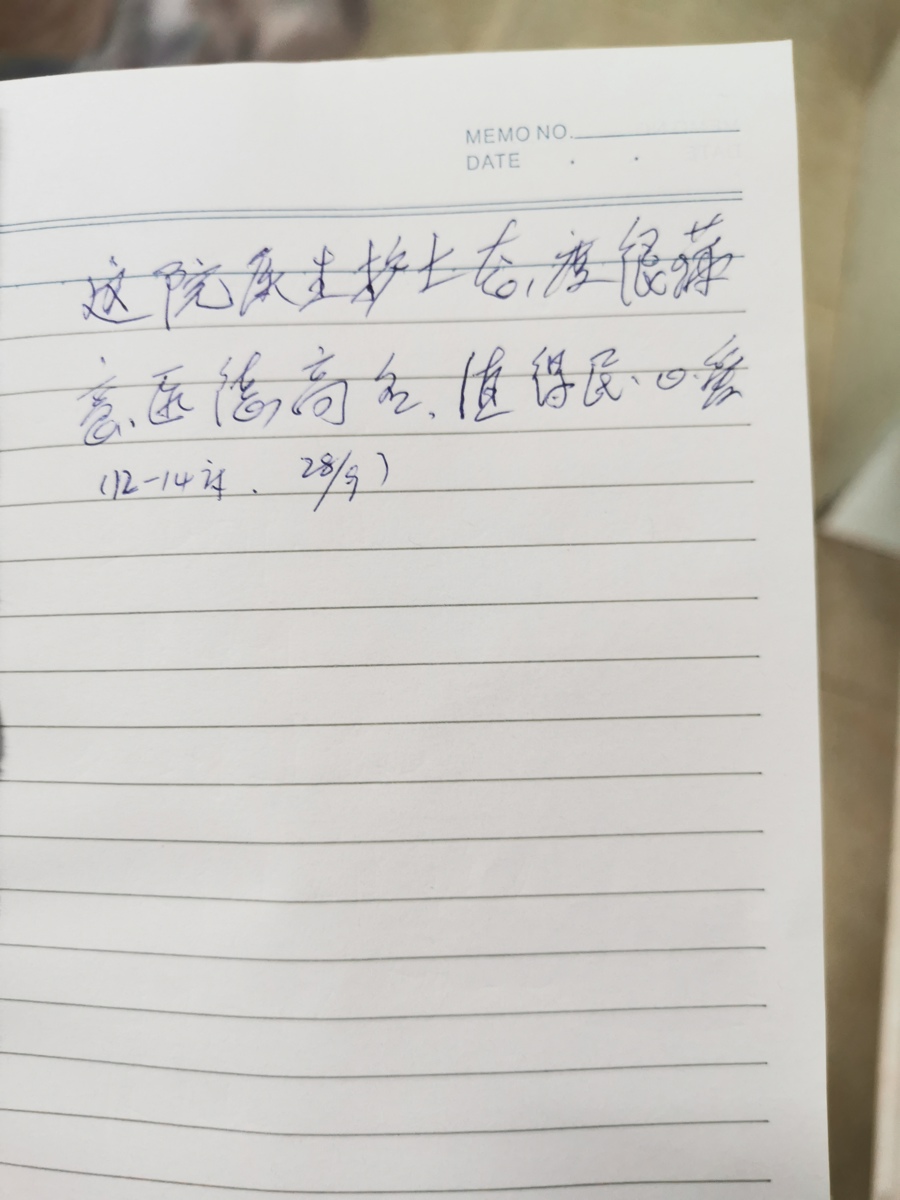 MEMO NO.
DATE . .
这院医生护士态度很满
意、医德高尚、值得民口誉
(12-14床. 28/9)